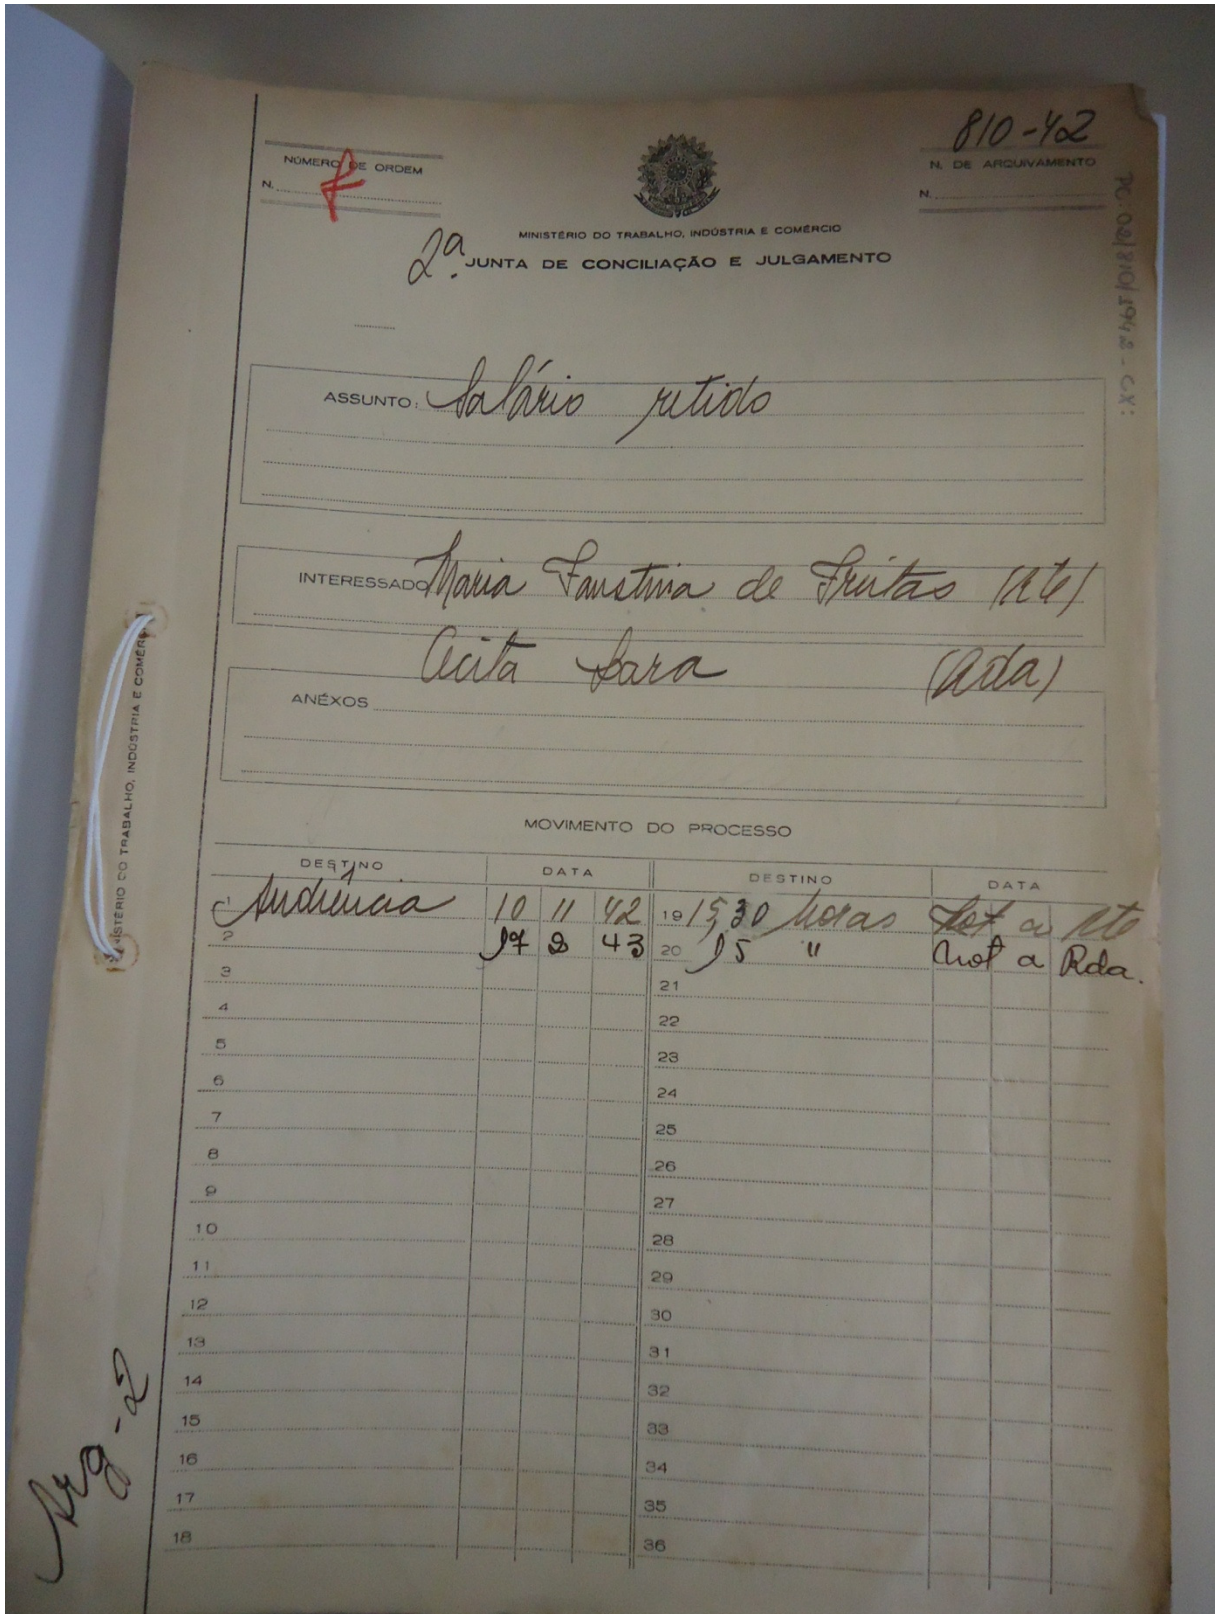 810-42
NÚMERO DE ORDEM
N. DE ARQUIVAMENTO
N.
N.
MINISTÉRIO DO TRABALHO, INDÚSTRIA E COMÉRCIO
2ª JUNTA DE CONCILIAÇÃO E JULGAMENTO
PC: 02/810/1942 - CX:
ASSUNTO: Salário retido
INTERESSADO Maria Faustina de Freitas (Rte)
Sara (Rda)
ANÉXOS
MINISTÉRIO DO TRABALHO, INDÚSTRIA E COMÉR
MOVIMENTO DO PROCESSO
DESTINO DATA DESTINO DATA
1 Audiência 10 11 42 19 15,30 horas Not a Rte
2 17 2 43 20 15 " Not a Rda.
3 21
4 22
5 23
6 24
7 25
8 26
9 27
10 28
11 29
12 30
13 31
14 32
15 33
16 34
17 35
18 36
Arq-2